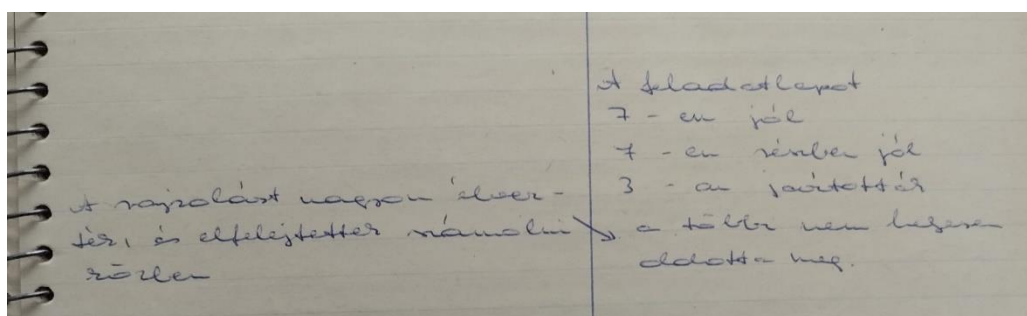 A rajzolást nagyon élvez-
ték, és elfelejtettek számolni
közben
A feladatlapot
7 - en jól
7 - en részben jól
3 - an javították
a többi nem helyesen
oldotta meg.